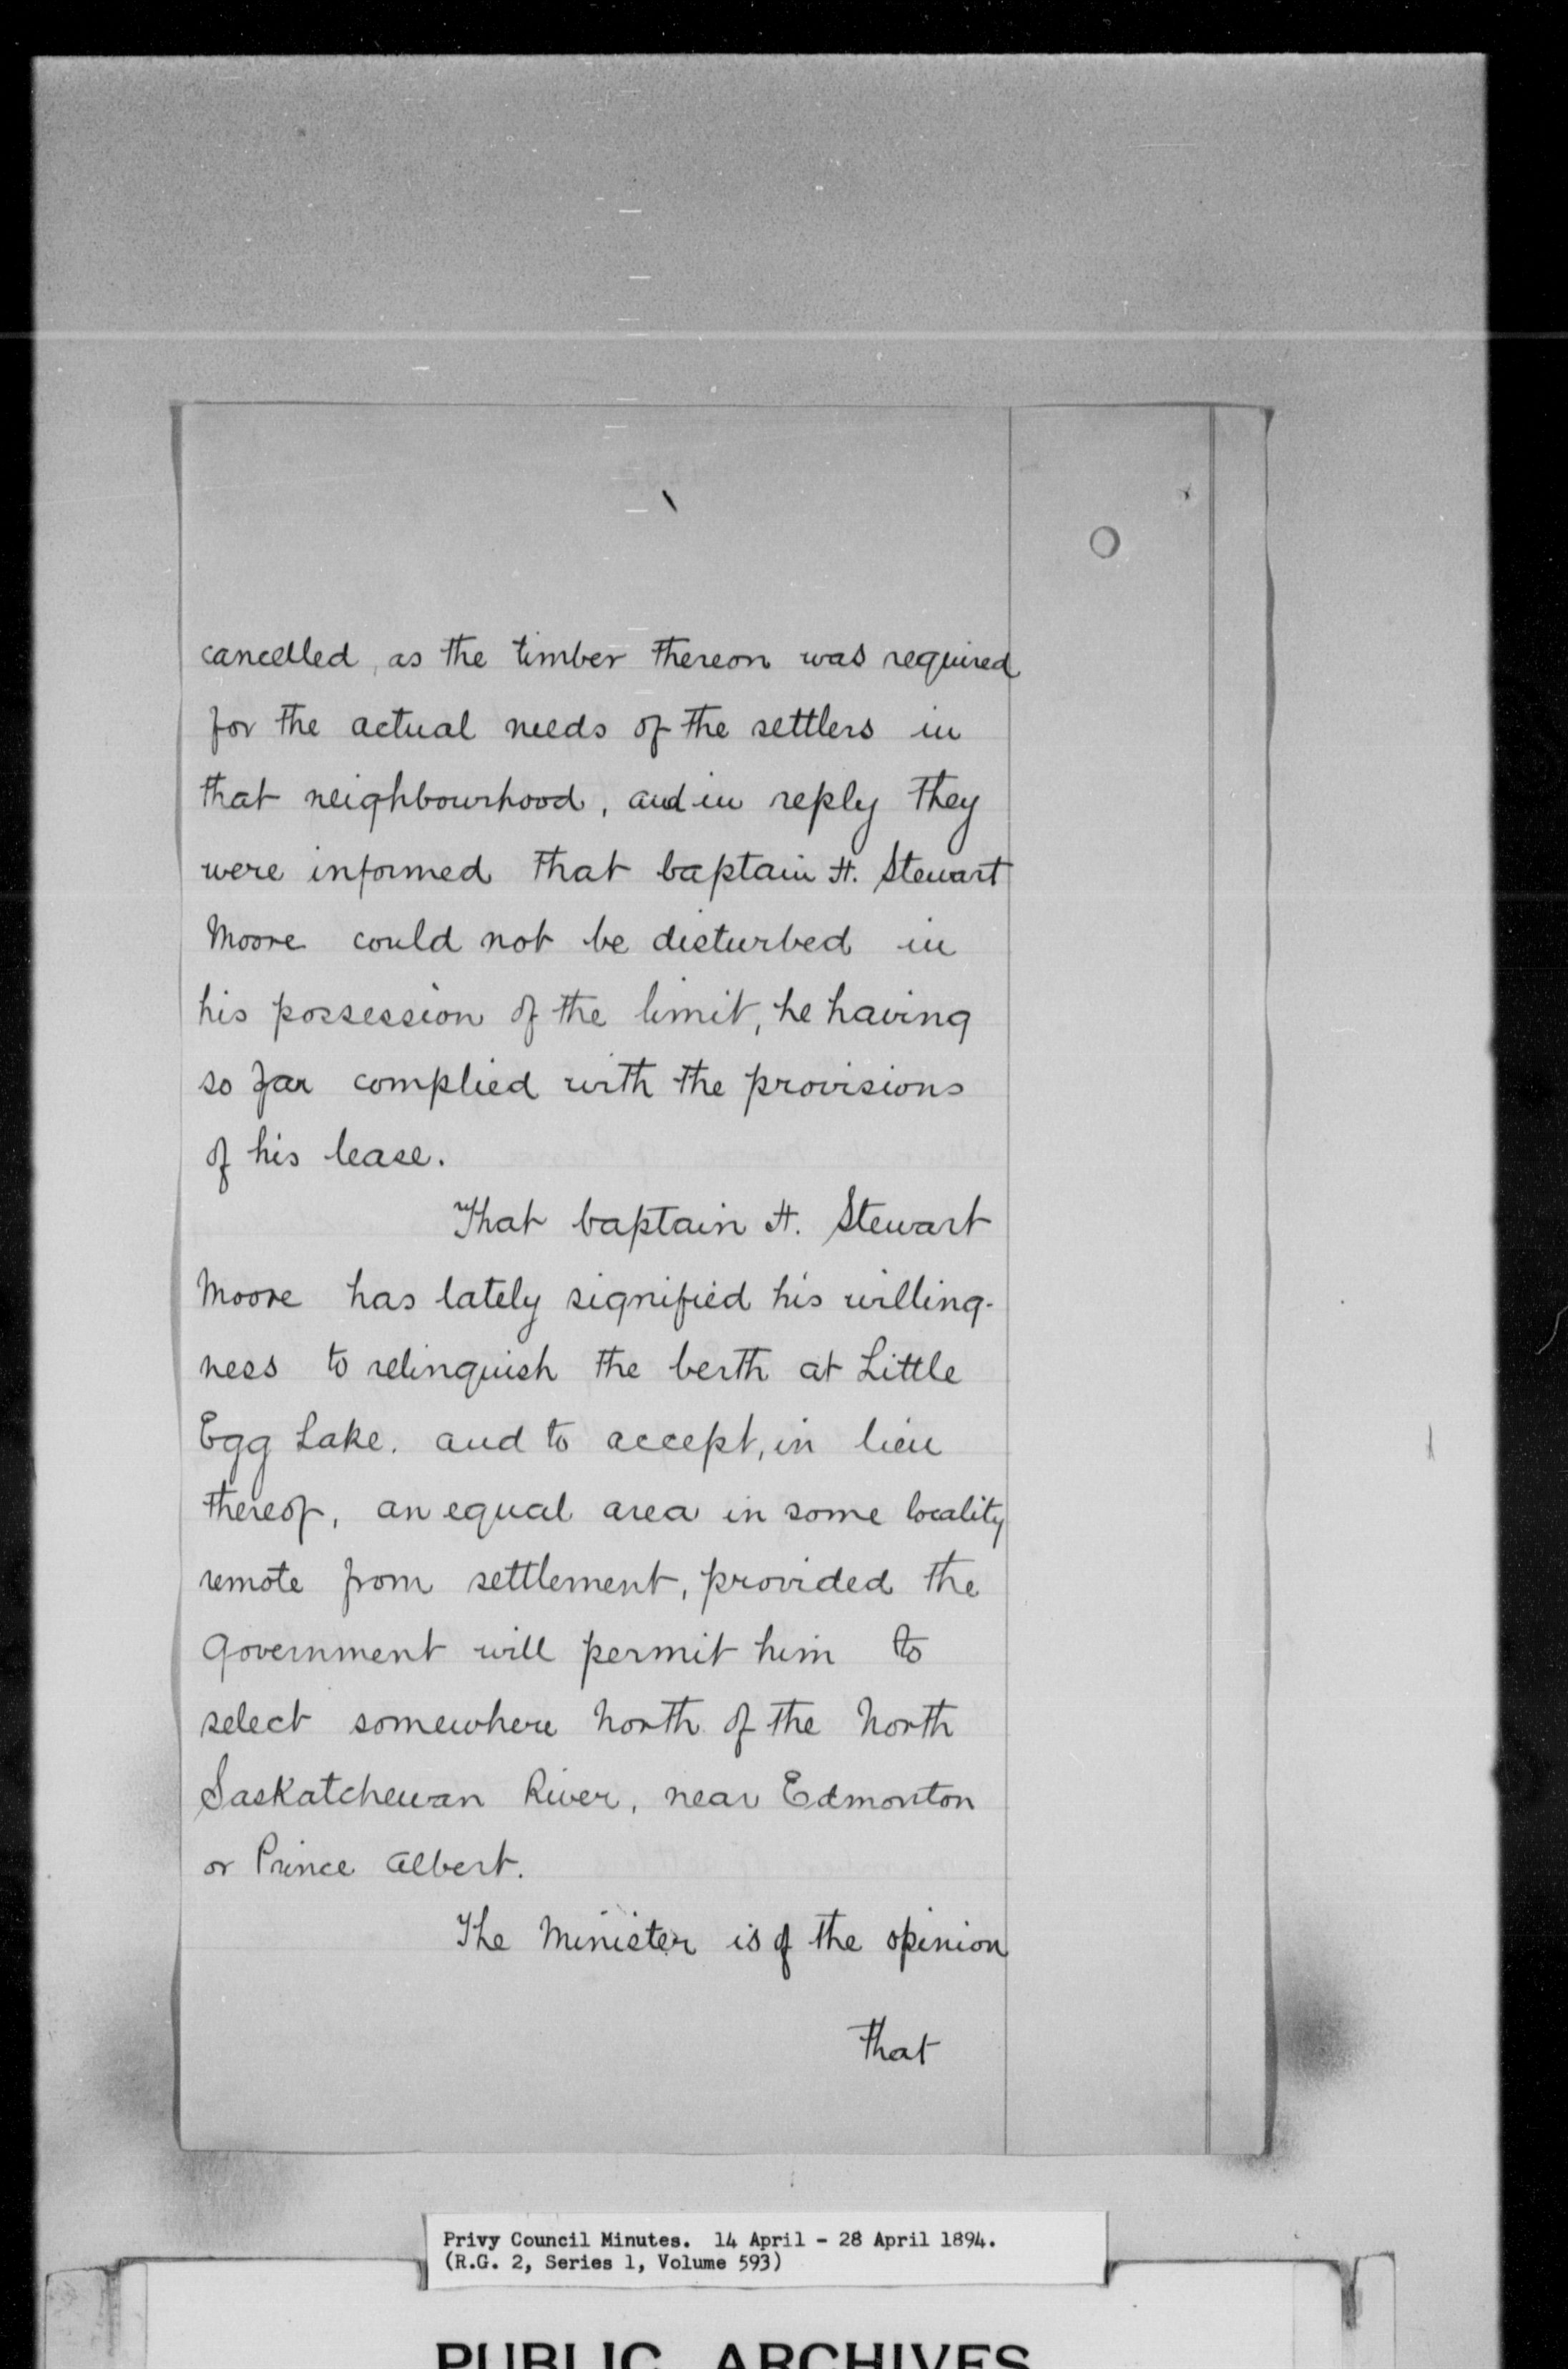 cancelled, as the timber thereon was required
for the actual needs of the settlers in
that neighbourhood, and in reply they
were informed that Captain H. Stewart
Moore could not be disturbed in
his possession of the limit, he having
so far complied with the provisions
of his lease.
That Captain H. Stewart
Moore has lately signified his willing-
ness to relinquish the berth at Little
Egg Lake. and to accept, in lieu
thereof, an equal area in some locality
remote from settlement, provided the
Government will permit him to
select somewhere North of the North
Saskatchewan River, near Edmonton
or Prince Albert.
The Minister is of the opinion
that
Privy Council Minutes. 14 April - 28 April 1894.
(R.G. 2, Series 1, Volume 593)
PUBLIC ARCHIVES